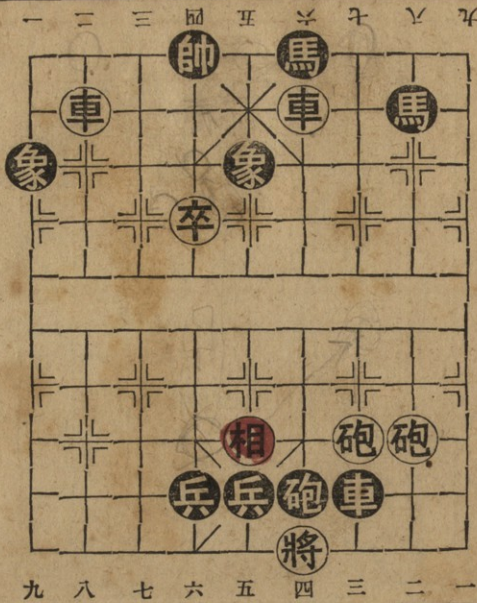 一 二 三 四 五 六 七 八 九
帥 馬
車 車 馬
象 象
卒
相 砲 砲
兵 兵 砲 車
將
九 八 七 六 五 四 三 二 一